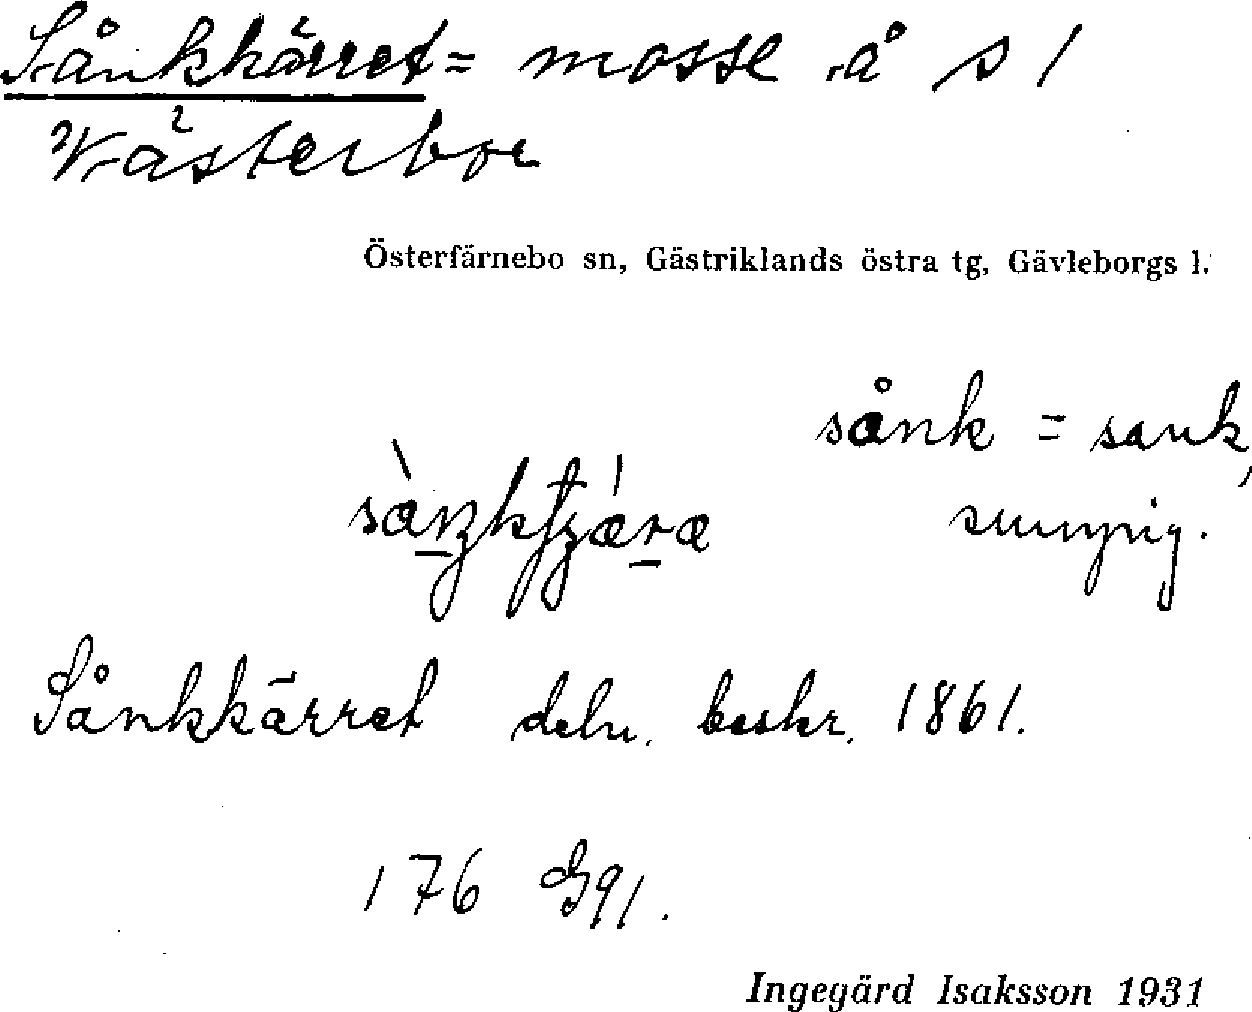 Sånkkärret = mosse å s /
Västerbor
Österfärnebo sn, Gästriklands östra tg, Gävleborgs l.
sånk = sank,
sumpig.
Sånkkärret deln. beskr. 1861.
176 Gg /.
Ingegärd Isaksson 1931